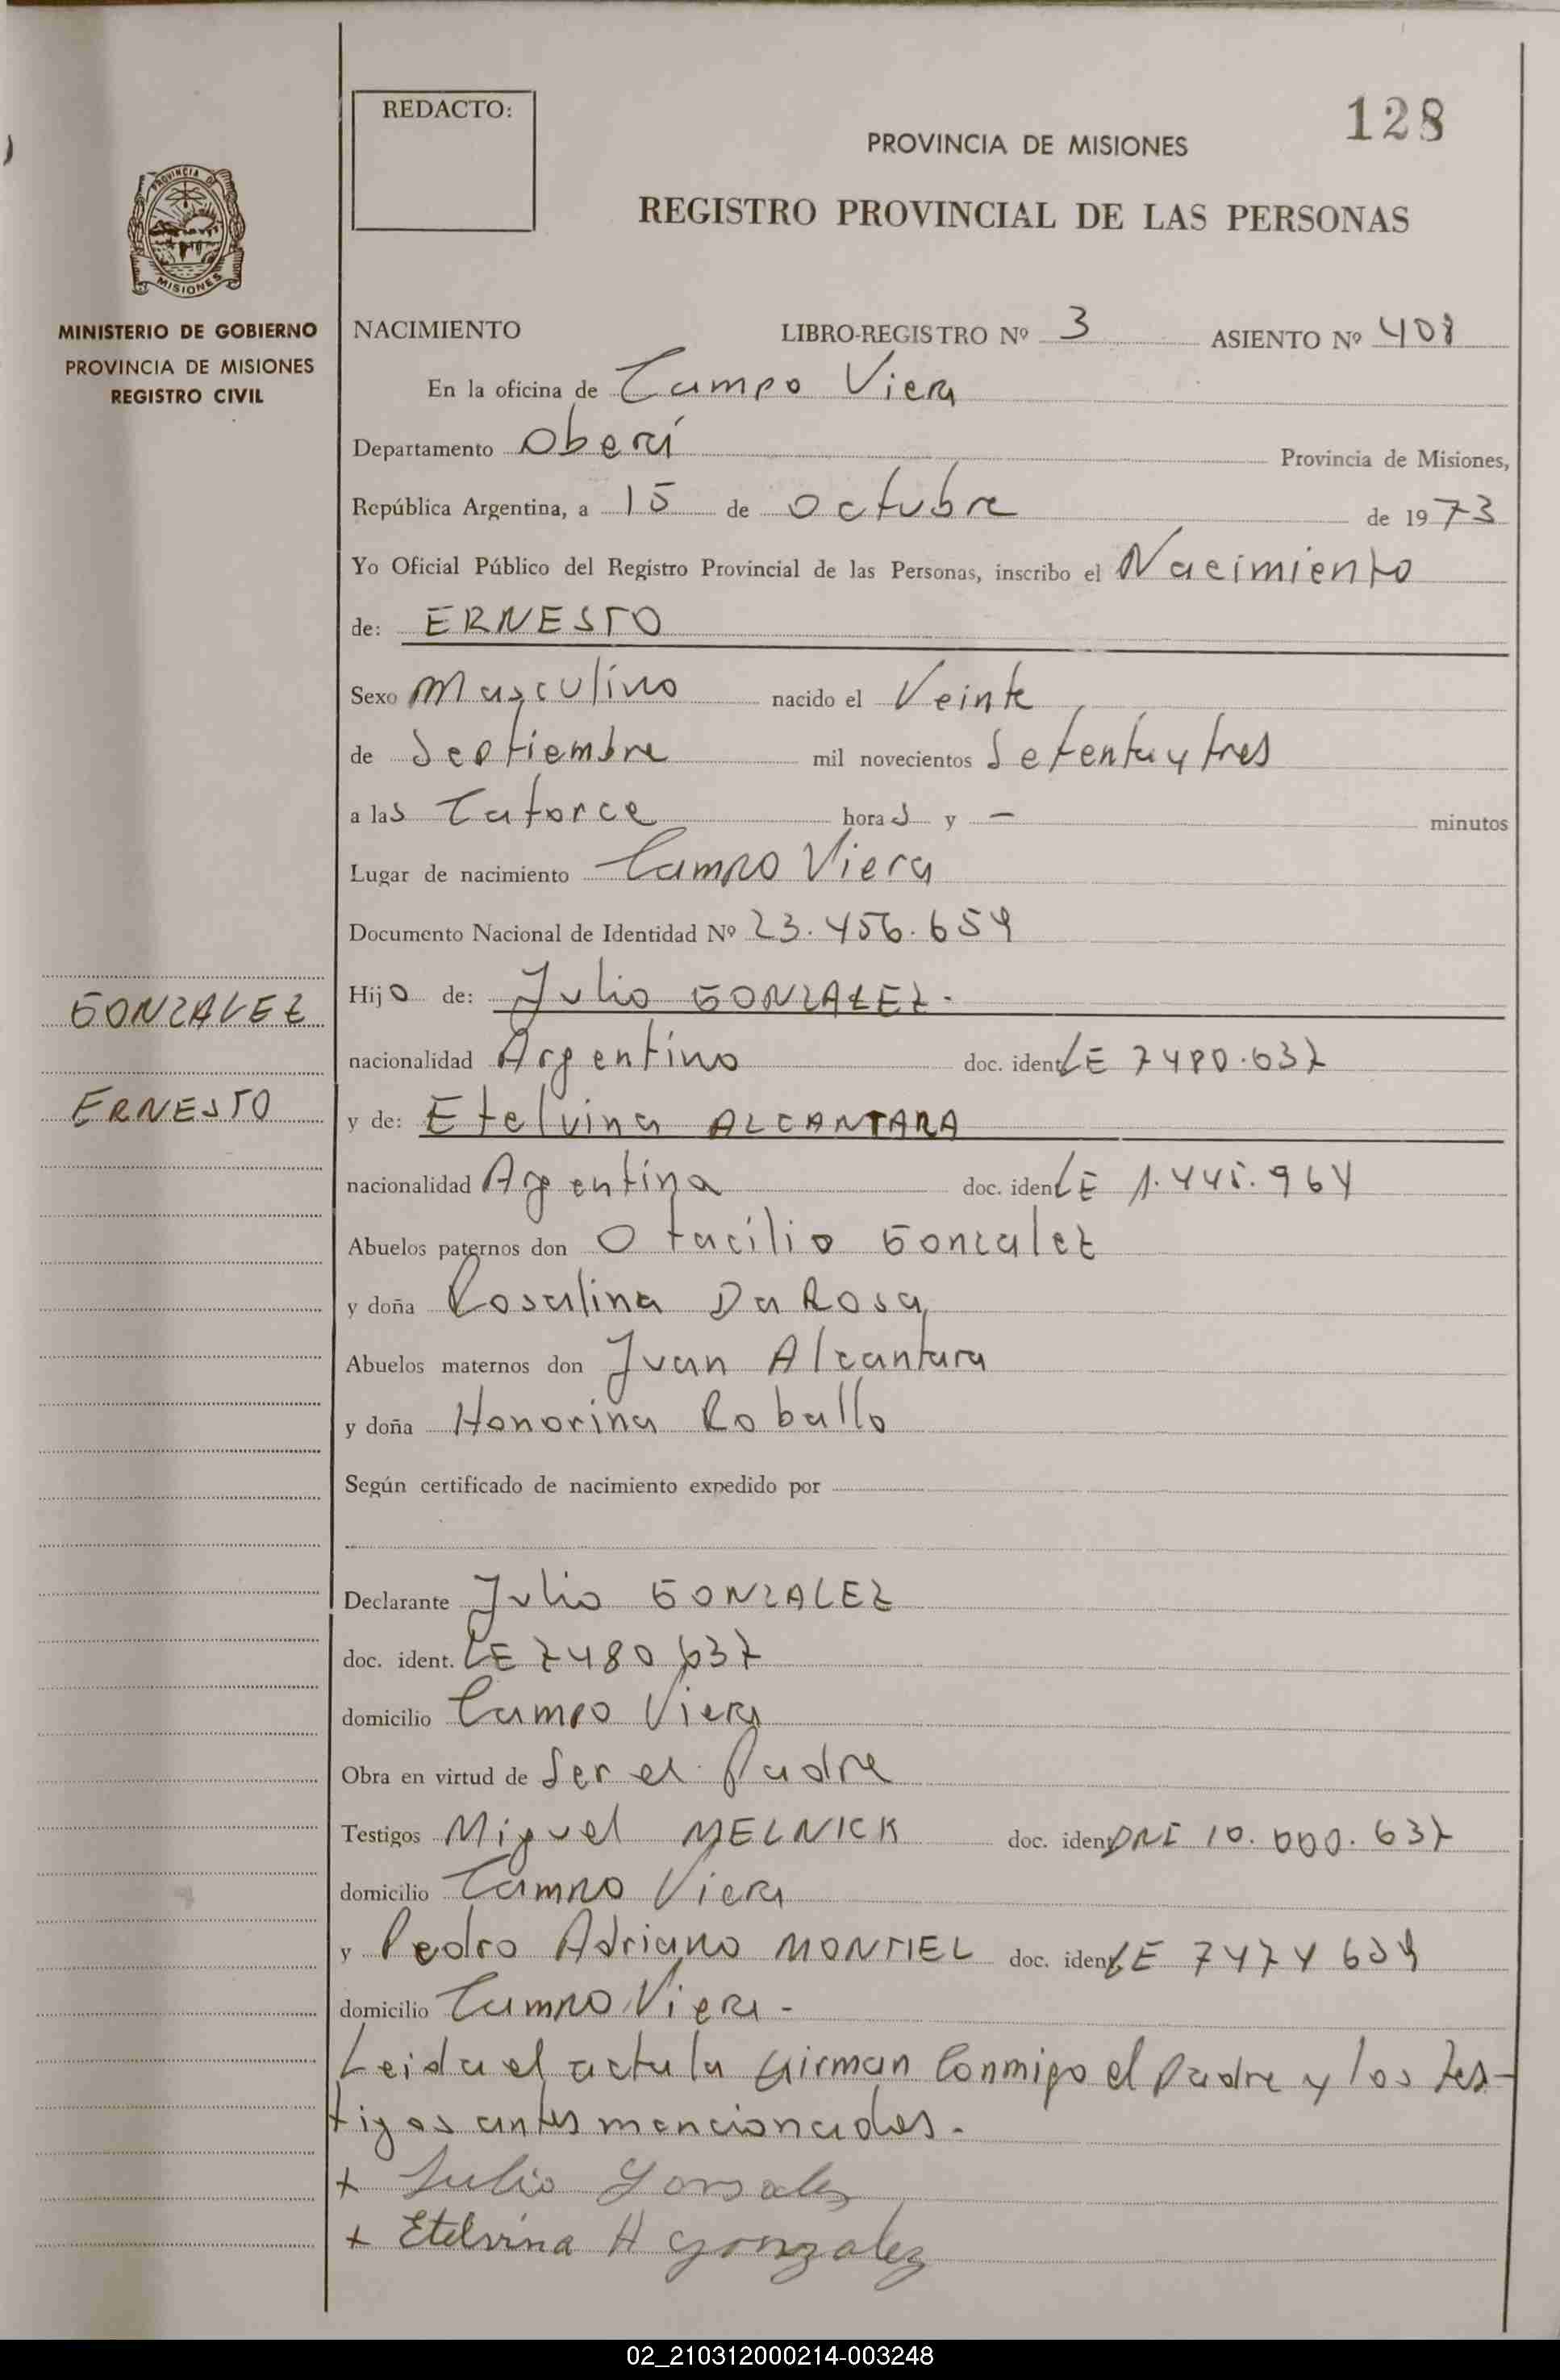 128
REDACTO:
PROVINCIA DE MISIONES
REGISTRO PROVINCIAL DE LAS PERSONAS
PROVINCIA DE
MISIONES
MINISTERIO DE GOBIERNO
PROVINCIA DE MISIONES
REGISTRO CIVIL
NACIMIENTO LIBRO-REGISTRO Nº 3 ASIENTO Nº 408
En la oficina de Campo Viera
Departamento Oberá Provincia de Misiones,
República Argentina, a 15 de octubre de 1973
Yo Oficial Público del Registro Provincial de las Personas, inscribo el Nacimiento
de: ERNESTO
Sexo Masculino nacido el Veinte
de Septiembre mil novecientos Setenta y tres
a las Catorce horas y — minutos
Lugar de nacimiento Campo Viera
Documento Nacional de Identidad Nº 23.456.659
GONZALEZ
Hijo de: Julio GONZALEZ.
nacionalidad Argentino doc. ident LE 7480.637
ERNESTO
y de: Etelvina ALCANTARA
nacionalidad Argentina doc. iden LE 1.445.964
Abuelos paternos don Otacilio Gonzalez
y doña Rosalina Da Rosa
Abuelos maternos don Juan Alcantara
y doña Honorina Roballo
Según certificado de nacimiento expedido por
Declarante Julio GONZALEZ
doc. ident. LE 7480637
domicilio Campo Viera
Obra en virtud de Ser el Padre
Testigos Miguel MELNICK doc. iden DNI 10.000.637
domicilio Campo Viera
y Pedro Adriano MONTIEL doc. iden LE 7474659
domicilio Campo Viera -
Leida el acta la firman Conmigo el Padre y los tes-
tigos antes mencionados.
+ Julio Gonsales
+ Etelvina H Gonzalez
02_210312000214-003248